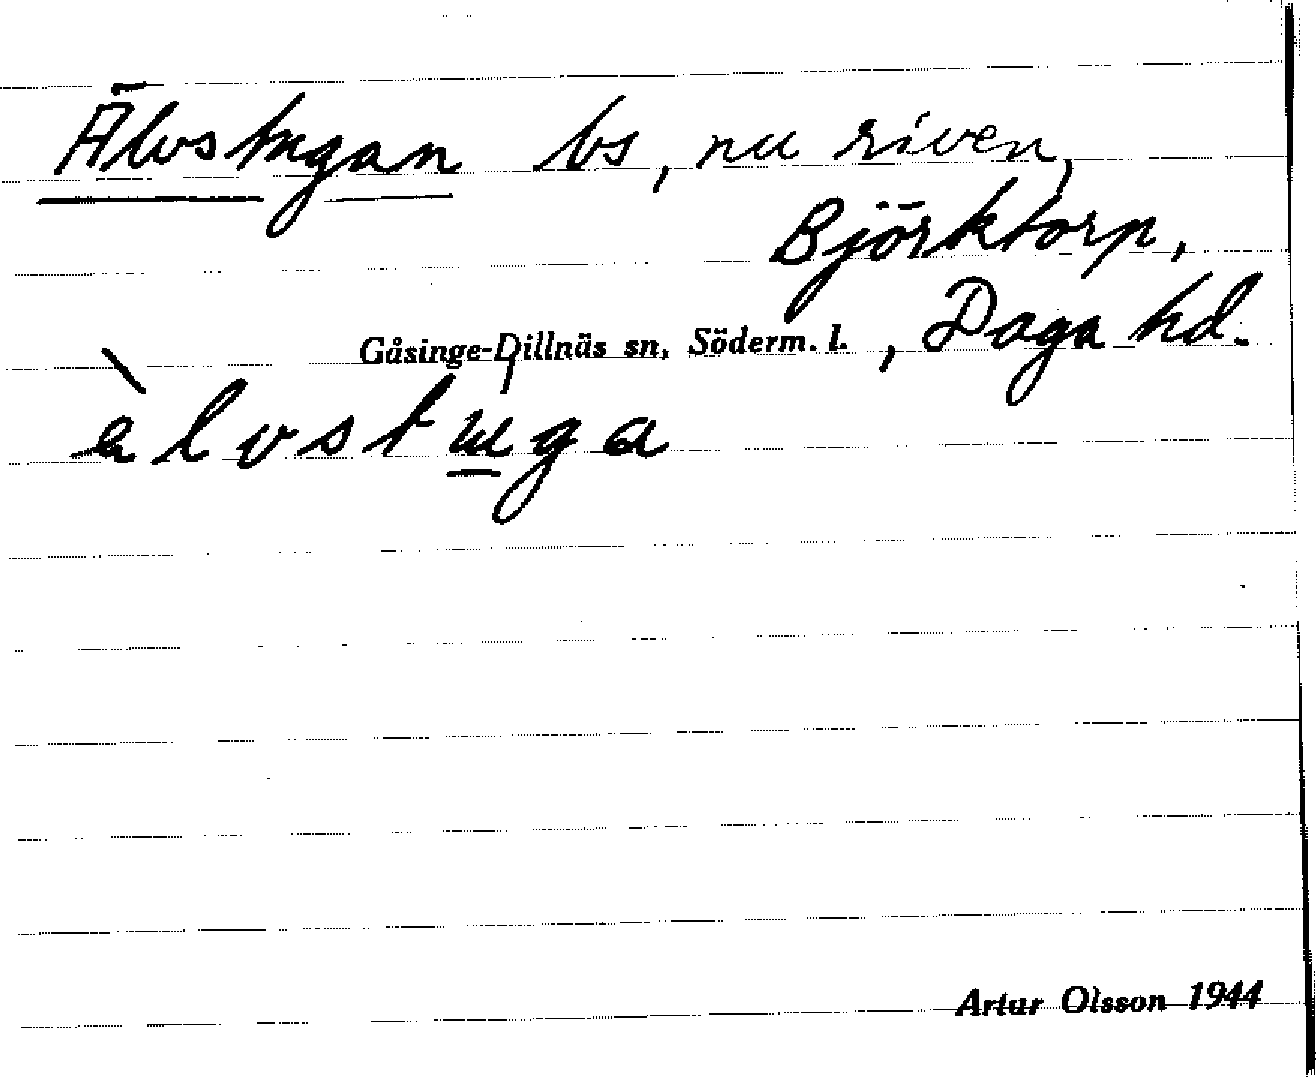 Älvstugan bs, nu riven,
Björktorp,
Gåsinge-Dillnäs sn, Söderm. l. , Daga hd.
älvstuga
Artur Olsson 1944